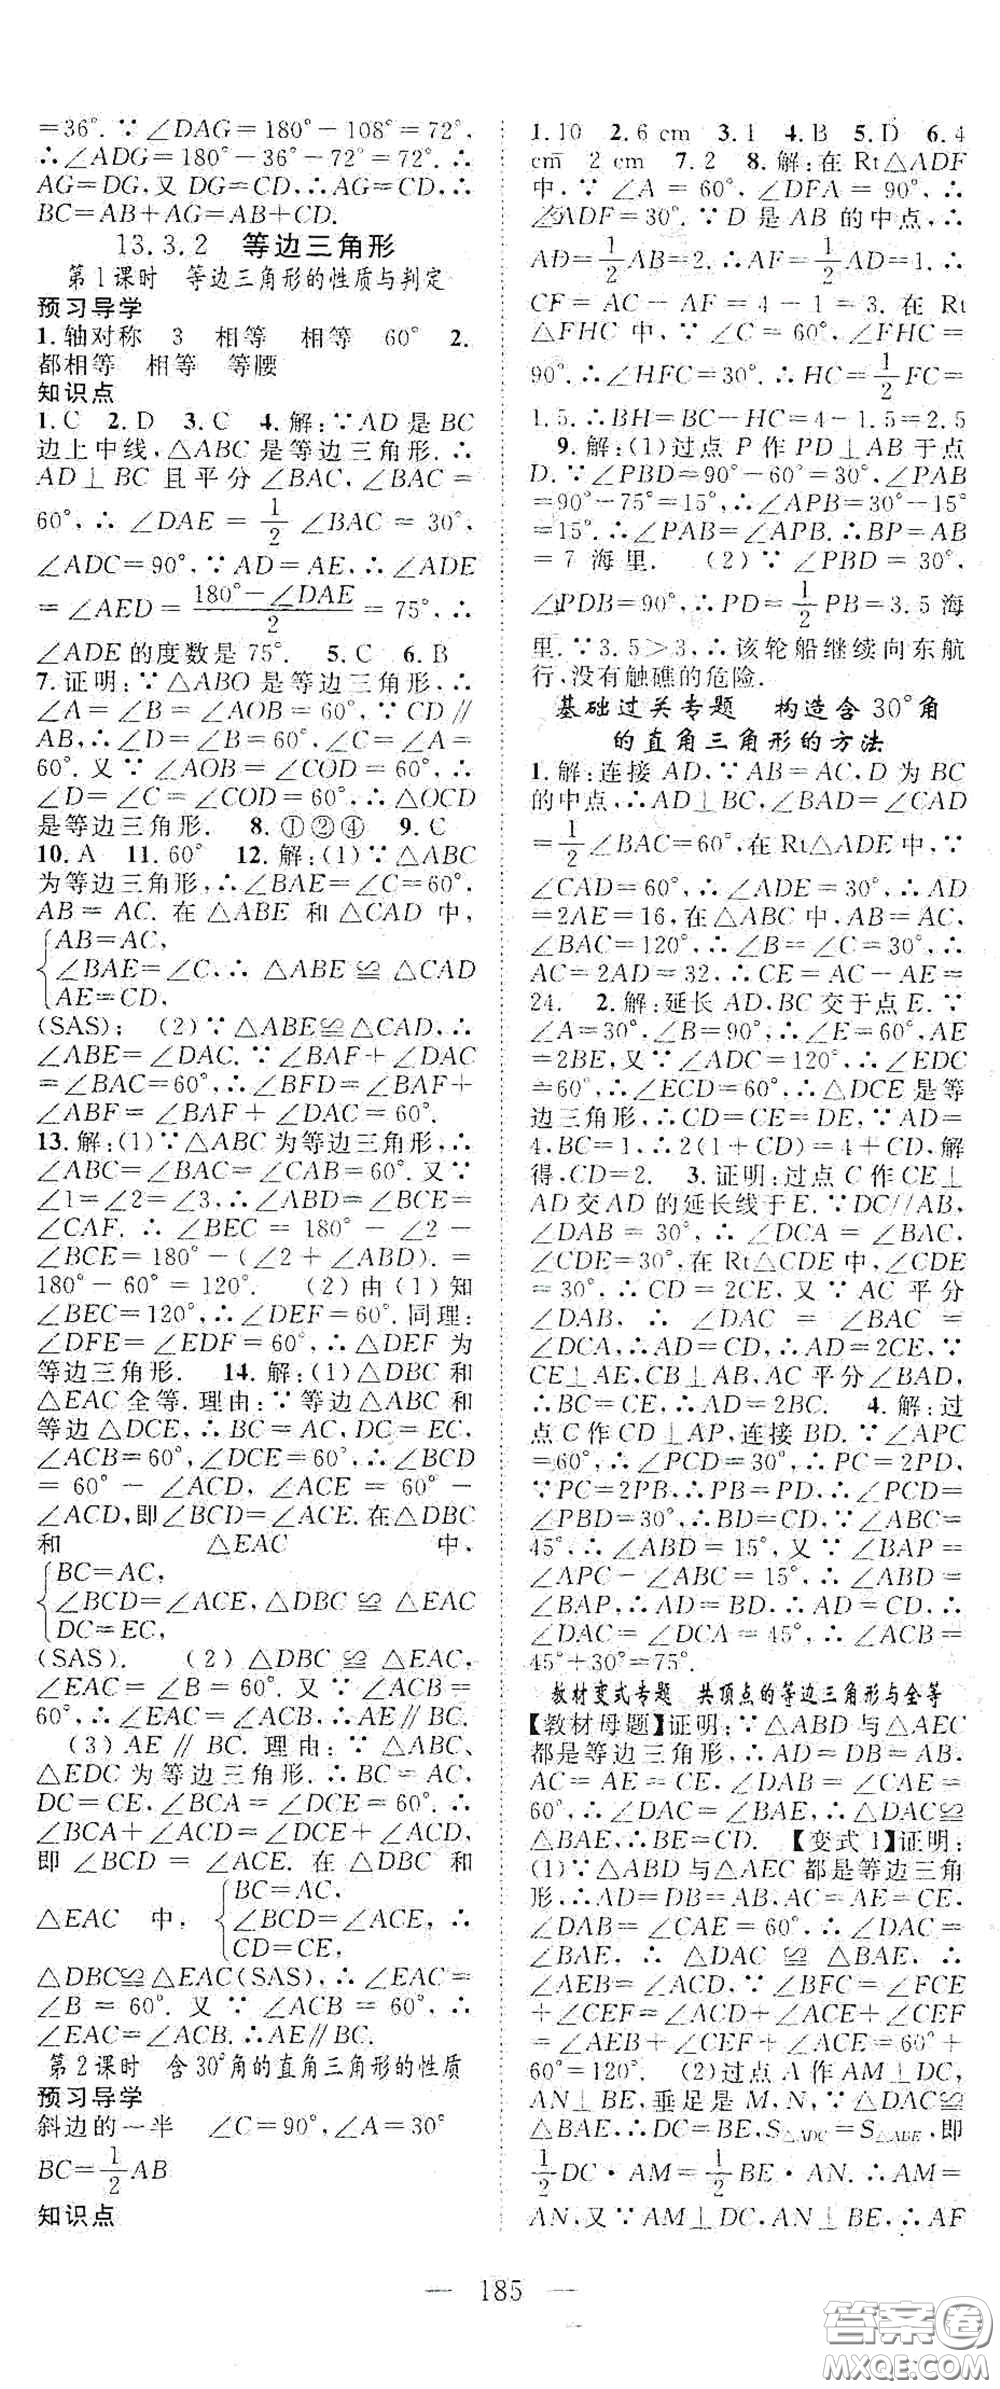 =36°. ∵ ∠DAG=180°-108°=72°,
∴∠ADG=180°-36°-72°=72°. ∴
AG=DG,又 DG=CD,∴AG=CD,∴
BC=AB+AG=AB+CD.
13.3.2 等边三角形
第1课时 等边三角形的性质与判定
预习导学
1.轴对称 3 相等 相等 60° 2.
都相等 相等 等腰
知识点
1.C 2.D 3.C 4.解:∵AD是BC
边上中线,△ABC是等边三角形.∴
AD⊥BC且平分∠BAC,∠BAC=
60°,∴∠DAE=1/2∠BAC=30°,
∠ADC=90°,∵AD=AE,∴∠ADE
=∠AED=(180°-∠DAE)/2=75°,∴
∠ADE的度数是75°. 5.C 6.B
7.证明:∵△ABO是等边三角形,∴
∠A=∠B=∠AOB=60°.∵CD∥
AB,∴∠D=∠B=60°,∠C=∠A=
60°.又∵∠AOB=∠COD=60°,∴
∠D=∠C=∠COD=60°,∴△OCD
是等边三角形. 8.①②④ 9.C
10.A 11.60° 12.解:(1)∵△ABC
为等边三角形,∴∠BAE=∠C=60°,
AB=AC.在△ABE和△CAD中,
{AB=AC,
∠BAE=∠C,∴△ABE≌△CAD
AE=CD,
(SAS); (2)∵△ABE≌△CAD,∴
∠ABE=∠DAC.∵∠BAF+∠DAC
=∠BAC=60°,∴∠BFD=∠BAF+
∠ABF=∠BAF+∠DAC=60°.
13.解:(1)∵△ABC为等边三角形,∴
∠ABC=∠BAC=∠CAB=60°.又∵
∠1=∠2=∠3,∴∠ABD=∠BCE=
∠CAF.∴∠BEC=180°-∠2-
∠BCE=180°-(∠2+∠ABD).=
180°-60°=120°. (2)由(1)知
∠BEC=120°,∴∠DEF=60°.同理:
∠DFE=∠EDF=60°,∴△DEF为
等边三角形. 14.解:(1)△DBC和
△EAC全等.理由:∵等边△ABC和
等边△DCE,∴BC=AC,DC=EC,
∠ACB=60°,∠DCE=60°,∴∠BCD
=60°-∠ACD,∠ACE=60°-
∠ACD,即∠BCD=∠ACE.在△DBC
和 △EAC 中,
{BC=AC,
∠BCD=∠ACE,△DBC≌△EAC
DC=EC,
(SAS). (2)△DBC≌△EAC,
∠EAC=∠B=60°.又∵∠ACB=
60°,∴∠EAC=∠ACB,∴AE∥BC.
(3)AE∥BC.理由:∵△ABC、
△EDC为等边三角形.∴BC=AC,
DC=CE,∠BCA=∠DCE=60°.∴
∠BCA+∠ACD=∠DCE+∠ACD,
即∠BCD=∠ACE.在△DBC和
{BC=AC,
△EAC 中, ∠BCD=∠ACE,∴
CD=CE,
△DBC≌△EAC(SAS),∴∠EAC=
∠B=60°.又∵∠ACB=60°,∴
∠EAC=∠ACB.∴AE∥BC.
第2课时 含30°角的直角三角形的性质
预习导学
斜边的一半 ∠C=90°,∠A=30°
BC=1/2AB
知识点
1.10 2.6 cm 3.1 4.B 5.D 6.4
cm 2 cm 7.2 8.解:在Rt△ADF
中,∵∠A=60°,∠DFA=90°,∴
∠ADF=30°.∵D是AB的中点,∴
AD=1/2AB=2.∴AF=1/2AD=1.∴
CF=AC-AF=4-1=3.在Rt
△FHC中,∵∠C=60°,∠FHC=
90°.∴∠HFC=30°.∴HC=1/2FC=
1.5.∴BH=BC-HC=4-1.5=2.5
9.解:(1)过点P作PD⊥AB于点
D.∵∠PBD=90°-60°=30°,∠PAB
=90°-75°=15°,∴∠APB=30°-15°
=15°.∴∠PAB=∠APB.∴BP=AB
=7海里. (2)∵∠PBD=30°,
∠PDB=90°,∴PD=1/2PB=3.5海
里.∵3.5>3,∴该轮船继续向东航
行,没有触礁的危险.
基础过关专题 构造含30°角
的直角三角形的方法
1.解:连接AD,∵AB=AC,D为BC
的中点,∴AD⊥BC,∠BAD=∠CAD
=1/2∠BAC=60°,在Rt△ADE中,∵
∠CAD=60°,∴∠ADE=30°,∴AD
=2AE=16,在△ABC中,AB=AC,
∠BAC=120°,∴∠B=∠C=30°,∴
AC=2AD=32,∴CE=AC-AE=
24. 2.解:延长AD,BC交于点E.∵
∠A=30°,∠B=90°,∴∠E=60°,AE
=2BE,又∵∠ADC=120°,∴∠EDC
=60°,∴∠ECD=60°,∴△DCE是等
边三角形,∴CD=CE=DE,∵AD=
4,BC=1,∴2(1+CD)=4+CD,解
得,CD=2. 3.证明:过点C作CE⊥
AD交AD的延长线于E.∵DC//AB,
∠DAB=30°,∴∠DCA=∠BAC,
∠CDE=30°,在Rt△CDE中,∠CDE
=30°,∴CD=2CE,又∵AC平分
∠DAB,∴∠DAC=∠BAC=
∠DCA,∴AD=CD,∴AD=2CE,∵
CE⊥AE,CB⊥AB,AC平分∠BAD,
∴BC=CE,∴AD=2BC. 4.解:过
点C作CD⊥AP,连接BD.∵∠APC
=60°,∴∠PCD=30°,∴PC=2PD,
∵PC=2PB,∴PB=PD,∴∠PCD=
∠PBD=30°,∴BD=CD,∵∠ABC=
45°,∴∠ABD=15°,又∵∠BAP=
∠APC-∠ABC=15°,∴∠ABD=
∠BAP,∴AD=BD,∴AD=CD,∴
∠DAC=∠DCA=45°,∴∠ACB=
45°+30°=75°.
教材变式专题 共顶点的等边三角形与全等
【教材母题】证明:∵△ABD与△AEC
都是等边三角形,∴AD=DB=AB,
AC=AE=CE,∠DAB=∠CAE=
60°,∴∠DAC=∠BAE,∴△DAC≌
△BAE,∴BE=CD. 【变式1】证明:
(1)∵△ABD与△AEC都是等边三角
形,∴AD=DB=AB,AC=AE=CE,
∠DAB=∠CAE=60°,∴∠DAC=
∠BAE,∴△DAC≌△BAE,∴
∠AEB=∠ACD,∵∠BFC=∠FCE
+∠CEF=∠ACD+∠ACE+∠CEF
=∠AEB+∠CEF+∠ACE=60°+
60°=120°. (2)过点A作AM⊥DC,
AN⊥BE,垂足是M,N,∵△DAC≌
△BAE.∴DC=BE,S△ADC=S△ABE,即
1/2DC·AM=1/2BE·AN.∴AM=
AN,又∵AM⊥DC,AN⊥BE,∴AF
— 185 —
答案圈
MXQE.COM